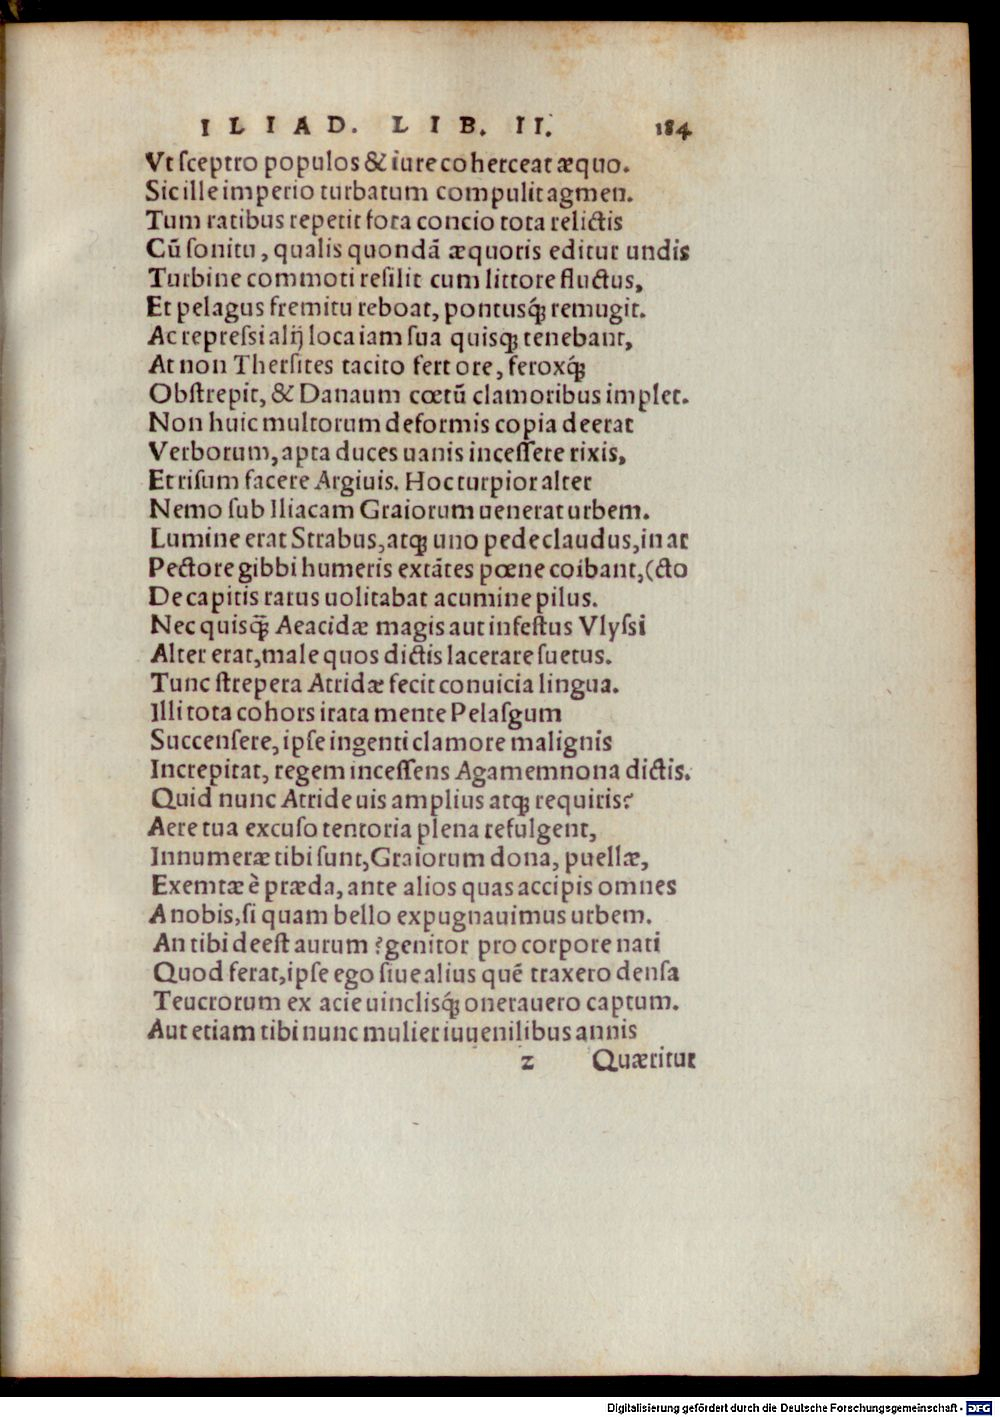 ILIAD. LIB. II. 184
Vt ſceptro populos & iure coherceat æquo.
Sic ille imperio turbatum compulit agmen.
Tum ratibus repetit fora concio tota relictis
Cū ſonitu, qualis quondā æquoris editur undis
Turbine commoti reſilit cum littore fluctus,
Et pelagus fremitu reboat, pontusq́; remugit.
Ac repreſsi alij loca iam ſua quisq; tenebant,
At non Therſites tacito fert ore, feroxq́;
Obſtrepit, & Danaum cœtū clamoribus implet.
Non huic multorum deformis copia deerat
Verborum, apta duces uanis inceſſere rixis,
Et riſum facere Argiuis. Hoc turpior alter
Nemo ſub Iliacam Graiorum uenerat urbem.
Lumine erat Strabus, atq; uno pede claudus, in ar
Pectore gibbi humeris extātes pœne coibant, (cto
De capitis rarus uolitabat acumine pilus.
Nec quisq̃; Aeacidæ magis aut infeſtus Vlyſsi
Alter erat, male quos dictis lacerare ſuetus.
Tunc ſtrepera Atridæ fecit conuicia lingua.
Illi tota cohors irata mente Pelaſgum
Succenſere, ipſe ingenti clamore malignis
Increpitat, regem inceſſens Agamemnona dictis.
Quid nunc Atride uis amplius atq; requiris?
Aere tua excuſo tentoria plena refulgent,
Innumeræ tibi ſunt, Graiorum dona, puellæ,
Exemtæ è præda, ante alios quas accipis omnes
A nobis, ſi quam bello expugnauimus urbem.
An tibi deeſt aurum? genitor pro corpore nati
Quod ferat, ipſe ego ſiue alius quē traxero denſa
Teucrorum ex acie uinclisq́; onerauero captum.
Aut etiam tibi nunc mulier iuuenilibus annis
z Quæritur
Digitalisierung gefördert durch die Deutsche Forschungsgemeinschaft - DFG